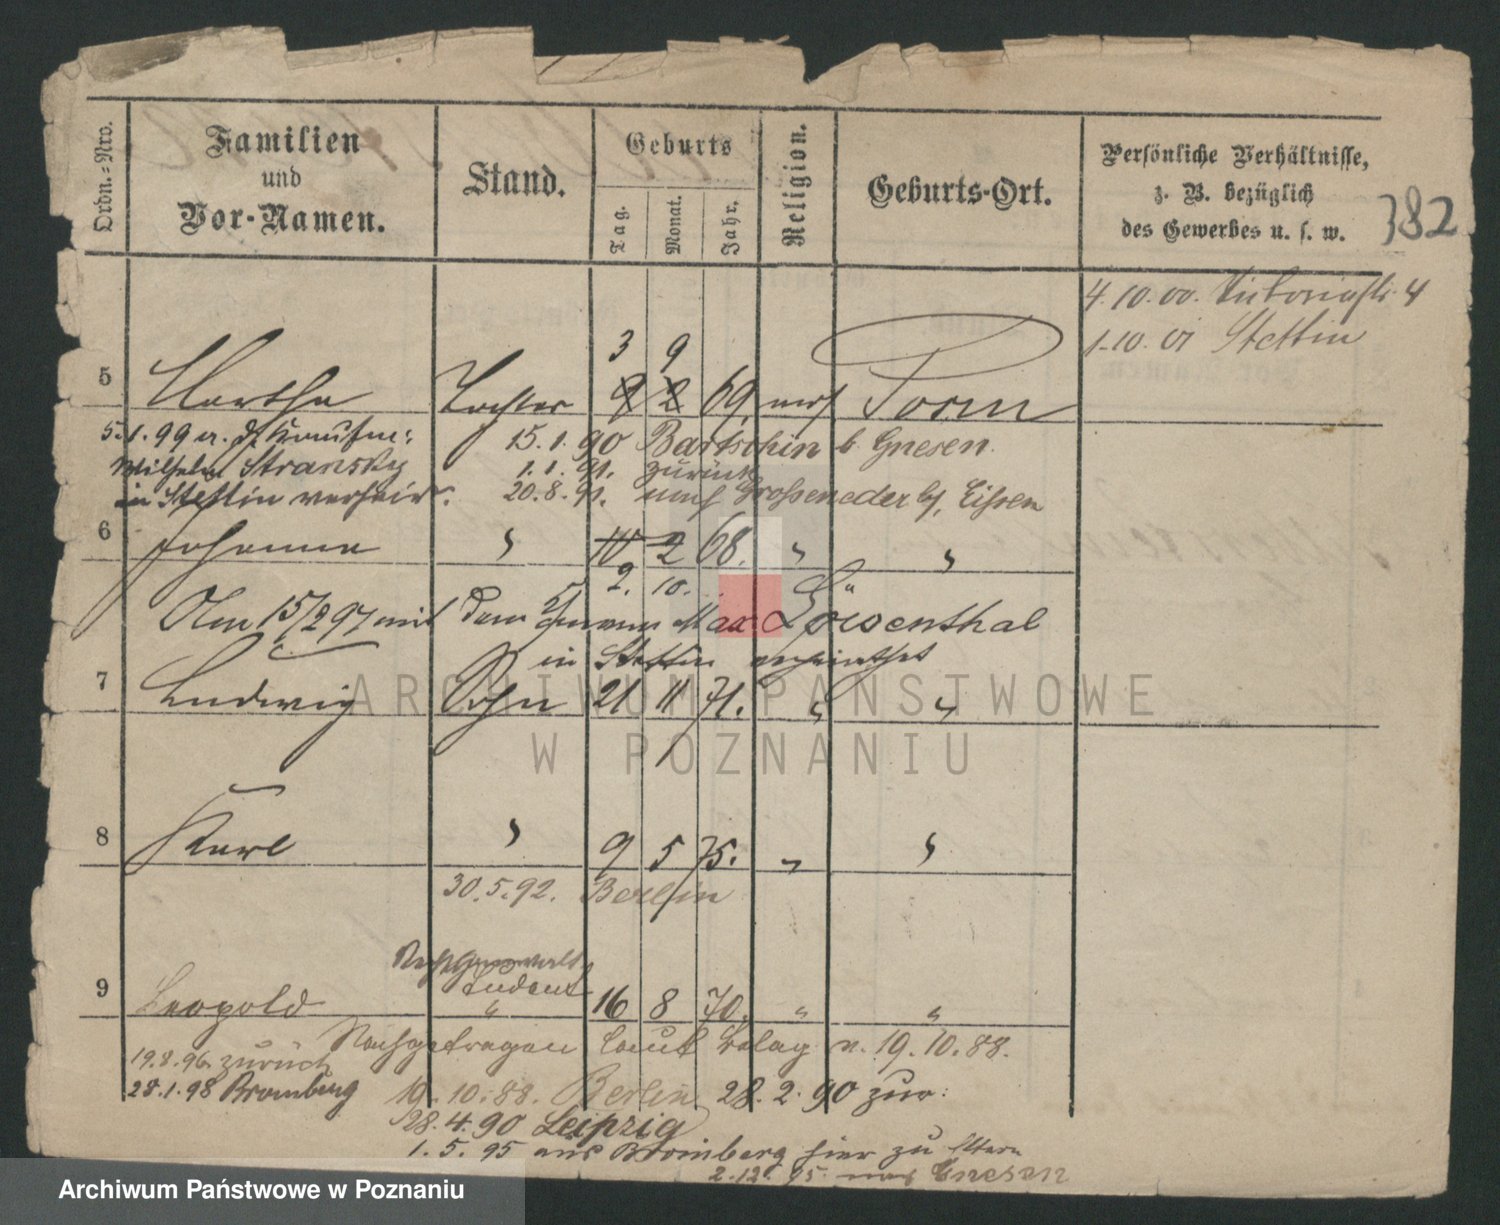 Ordn.-Nro.
Familien
und
Vor-Namen.
Stand.
Geburts
Tag.
Monat.
Jahr.
Religion.
Geburts-Ort.
Persönliche Verhältnisse,
z. B. bezüglich
des Gewerbes u. s. w.
382
4.10.00. Victoriastr. 4
1.10.01 Stettin
3 9
5 Martha Tochter 9 2 69. mos
5.1.99 a. d. Kaufm:
Wilhelm Stransky
in Stettin verheir.
15.1.90 Bartschin b. Gnesen.
1.1.91. zurück
20.8.91. nach Grosseneder
6 Johanna " 10 2 68. " "
2. 10.
Am 15/2 97 mit dem Max Löwenthal
in Stettin verheirathet
7 Ludwig Sohn 21 11 71. " "
8 Karl " 9 5 75. " "
30.5.92. Berlin
9 Leopold
Student
" 16 8 70. " "
Nachgetragen laut Belag v. 19.10.88.
19.8.96 zurück
28.1.98 Bromberg
19.10.88. Berlin 28.2.90 zur:
28.4.90 Leipzig
1.5.95 aus Bromberg hier zu Eltern
2.12.95. nach Gnesen
ARCHIWUM PAŃSTWOWE
W POZNANIU
Archiwum Państwowe w Poznaniu